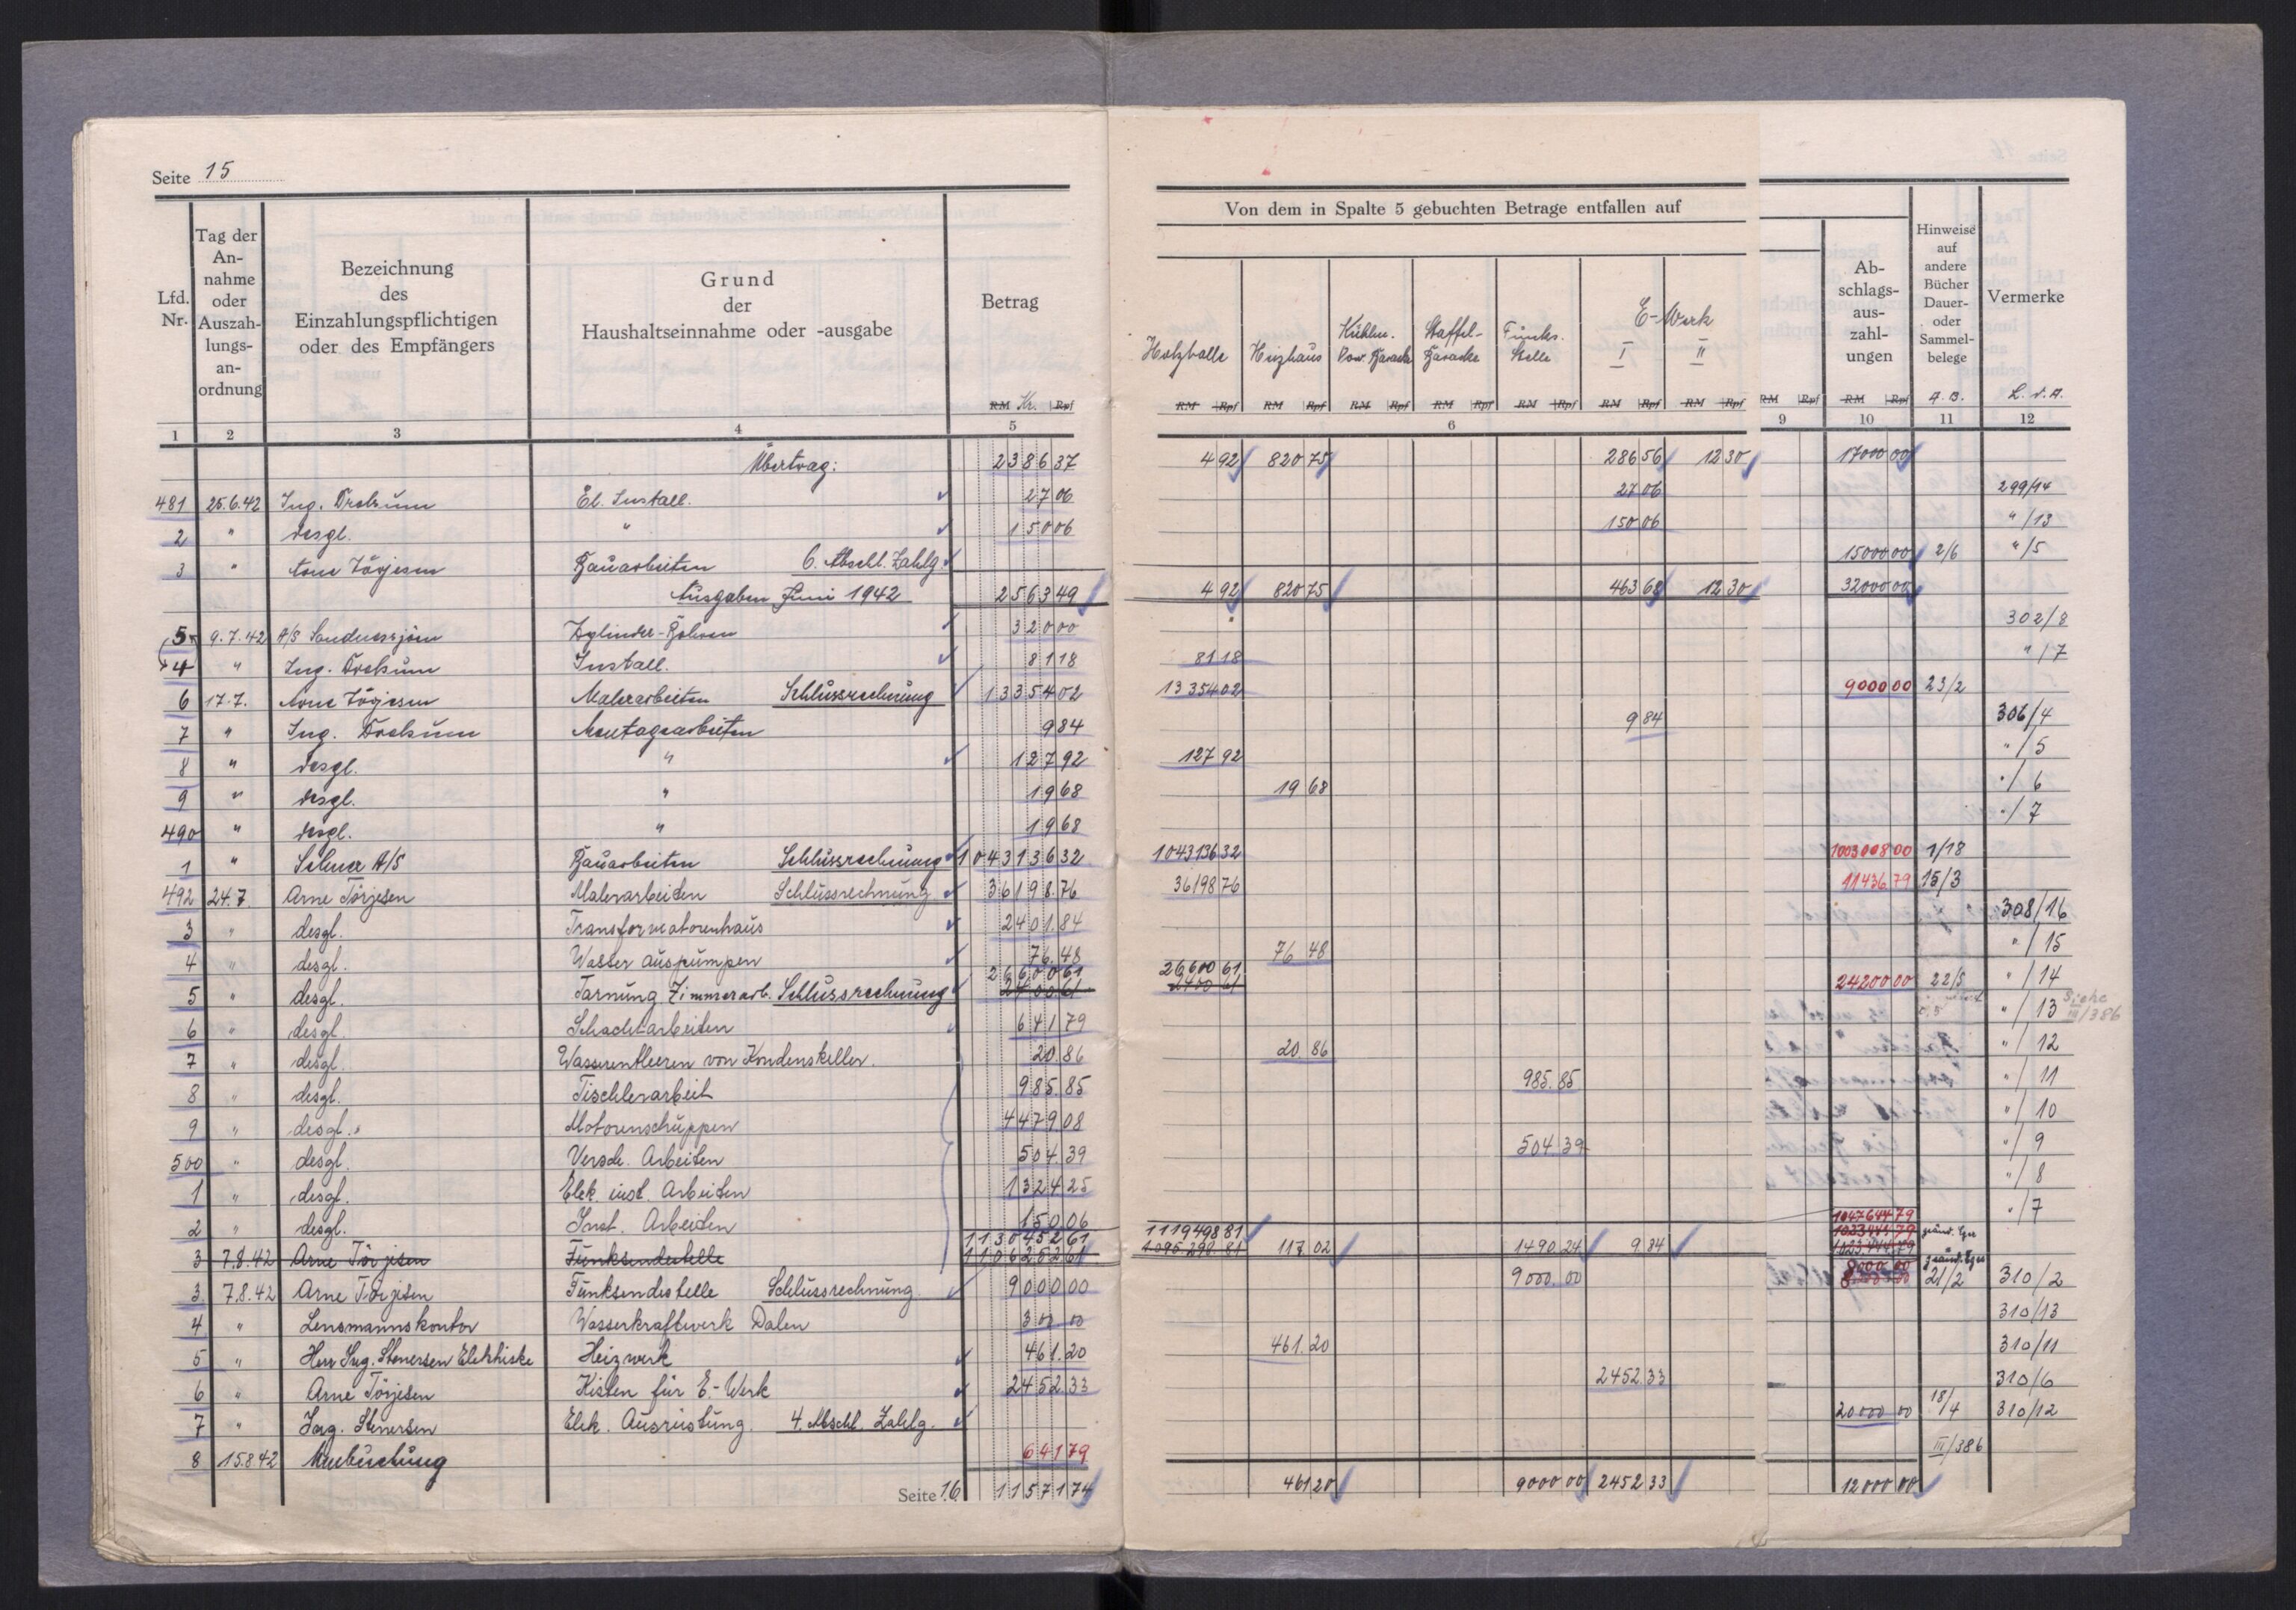 Seite 15
Lfd. Nr. | Tag der Annahme oder Auszahlungsanordnung | Bezeichnung des Einzahlungspflichtigen oder des Empfängers | Grund der Haushaltseinnahme oder -ausgabe | Betrag | Von dem in Spalte 5 gebuchten Betrage entfallen auf | Abschlagsauszahlungen | Hinweise auf andere Bücher Dauer- oder Sammelbelege | Vermerke
Heizhaus | Staffel-Baracke | Funks. Stelle | E-Werk I II
RM Kr. Rpf | RM Rpf | RM Rpf | RM Rpf | RM Rpf | RM Rpf | RM Rpf | RM Rpf | RM Rpf | RM Rpf | A. B. | L. d. A.
1 | 2 | 3 | 4 | 5 | 6 | 9 | 10 | 11 | 12
Übertrag: 2386 37 | 4 92 | 820 75 | 286 56 | 12 30 | 17000 00
481 | 25.6.42 | Ing. | El. Install. | 27 06 | 27 06 | 299/14
2 | " | desgl. | " | 150 06 | 150 06 | " /13
3 | " | Arne Törjesen | Bauarbeiten 6. Abschl. Zahlg. | 15000 00 | 2/6 | " /5
Ausgaben Juni 1942 | 2563 49 | 4 92 | 820 75 | 463 68 | 12 30 | 32000 00
5 | 9.7.42 | A/S | Zylinder-Rohren | 320 00 | 302/8
4 | " | Ing. | Install. | 81 18 | 81 18 | " /7
6 | 17.7. | Arne Törjesen | Malerarbeiten Schlussrechnung | 13354 02 | 13354 02 | 9000 00 | 23/2
7 | " | Ing. | Montagearbeiten | 9 84 | 9 84 | 306/4
8 | " | desgl. | " | 127 92 | 127 92 | " /5
9 | " | desgl. | " | 19 68 | 19 68 | " /6
490 | " | desgl. | " | 19 68 | " /7
1 | " | Selmer A/S | Bauarbeiten Schlussrechnung | 1043136 32 | 1043136 32 | 1003008 00 | 1/18
492 | 24.7 | Arne Törjesen | Malerarbeiten Schlussrechnung | 36198.76 | 36198 76 | 11436 79 | 15/3
3 | " | desgl. | Transformatorenhaus | 2401.84 | 308/16
4 | " | desgl. | Wasser auspumpen | 76.48 | 76 48 | " /15
26600 61 | 26600 61
5 | " | desgl. | Tarnung Zimmerarb. Schlussrechnung | 2400 61 | 2400 61 | 24200 00 | 22/5 | " /14
6 | " | desgl. | Schacht-arbeiten | 641 79 | " /13 Siehe III/386
7 | " | desgl. | Wasserentleeren von Kondenskeller. | 20.86 | 20.86 | " /12
8 | " | desgl. | Tischlerarbeit | 985.85 | 985.85 | " /11
9 | " | desgl. | Motorenschuppen | 4479 08 | " /10
500 | " | desgl. | Versch. Arbeiten | 504.39 | 504 39 | " /9
1 | " | desgl. | Elek. inst. Arbeiten | 1324 25 | " /8
2 | " | desgl. | Inst. Arbeiten | 150 06 | 1047644 79 | " /7
1130452 61 | 1119498 81 | 1033444 79 geänd.
3 | 7.8.42 | Arne Törjesen | Funksendestelle | 1106252 61 | 1095298 81 | 117 02 | 1490.24 | 9.84 | 1023444 79
3 | 7.8.42 | Arne Törjesen | Funksendestelle Schlussrechnung | 9000 00 | 9000.00 | 8000 00 | 21/2 | 310/2
4 | " | Lensmannskontor | Wasserkraftwerk Dalen | 300 00 | 310/13
5 | " | Herr Ing. Stenersen Elektriske | Heizwerk | 461.20 | 461.20 | 310/11
6 | " | Arne Törjesen | Kisten für E-Werk | 2452 33 | 2452.33 | 310/6
7 | " | Ing. Stenersen | Elek. Ausrüstung. 4. Abschl. Zahlg. | 20000 00 | 18/4 | 310/12
8 | 15.8.42 | Umbuchung | 641 79 | III/386
Seite 16 | 11571 74 | 461 20 | 9000 00 | 2452 33 | 12000 00